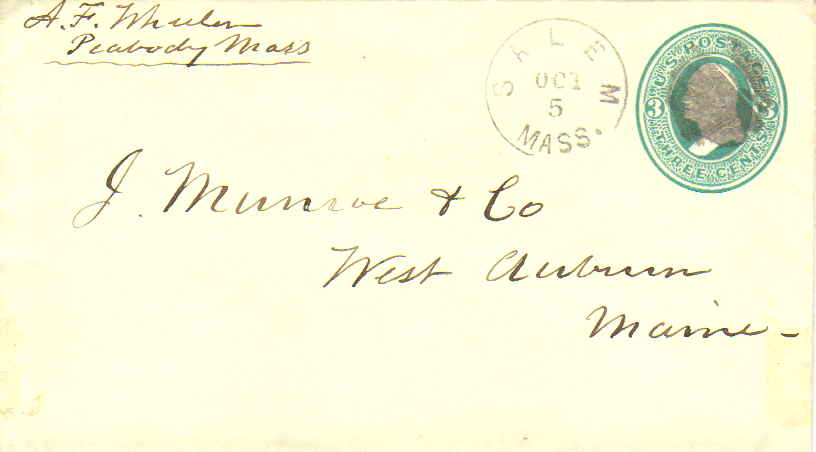 A. F. Wheeler
Peabody Mass
SALEM
OCT
5
MASS.
U.S. POSTAGE
3 3
THREE CENTS
J. Munroe & Co
West Auburn
Maine